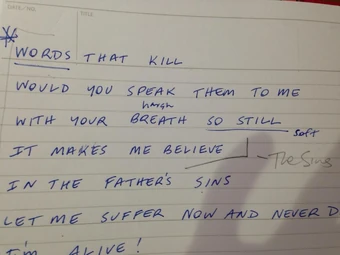 DATE / NO.
TITLE
* WORDS THAT KILL
WOULD YOU SPEAK THEM TO ME
harsh
WITH YOUR BREATH SO STILL
soft
IT MAKES ME BELIEVE
- The Sins
IN THE FATHER'S SINS
LET ME SUFFER NOW AND NEVER D
I'm ALIVE!